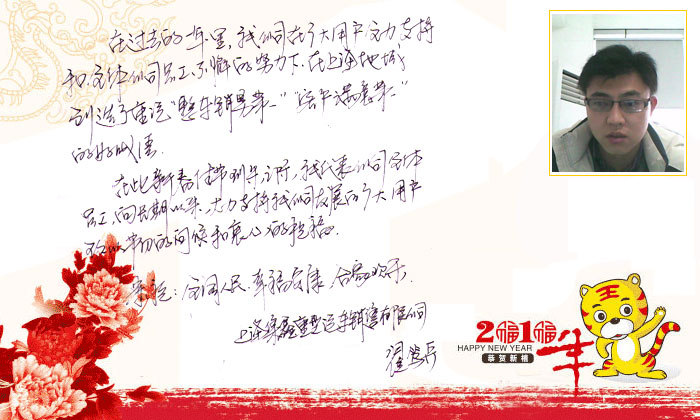 在过去的一年里,我们在广大用户大力支持
和全体公司员工不懈的努力下,在上海地域
创造了重汽"整车销量第一""客户满意第一"
的好成绩
在此新春佳节到来之际,我代表公司全体
员工,向长期以来,大力支持我们发展的广大用户
致以 的问候和衷心的祝福
祝:全国人民 幸福安康 合家欢乐
上海 重型汽车销售有限公司
王
2福1福年
HAPPY NEW YEAR
恭贺新禧